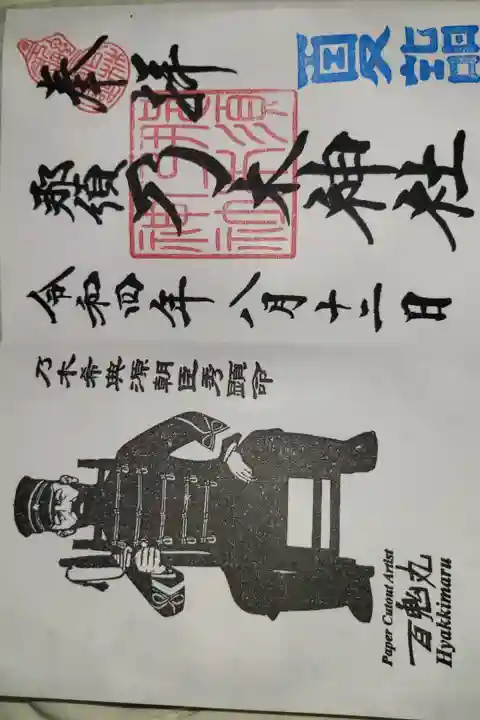 奉拝
那須乃木神社
令和四年八月十二日
乃木希典源朝臣秀顕命
Paper Cutout Artist
百鬼丸
Hyakkimaru